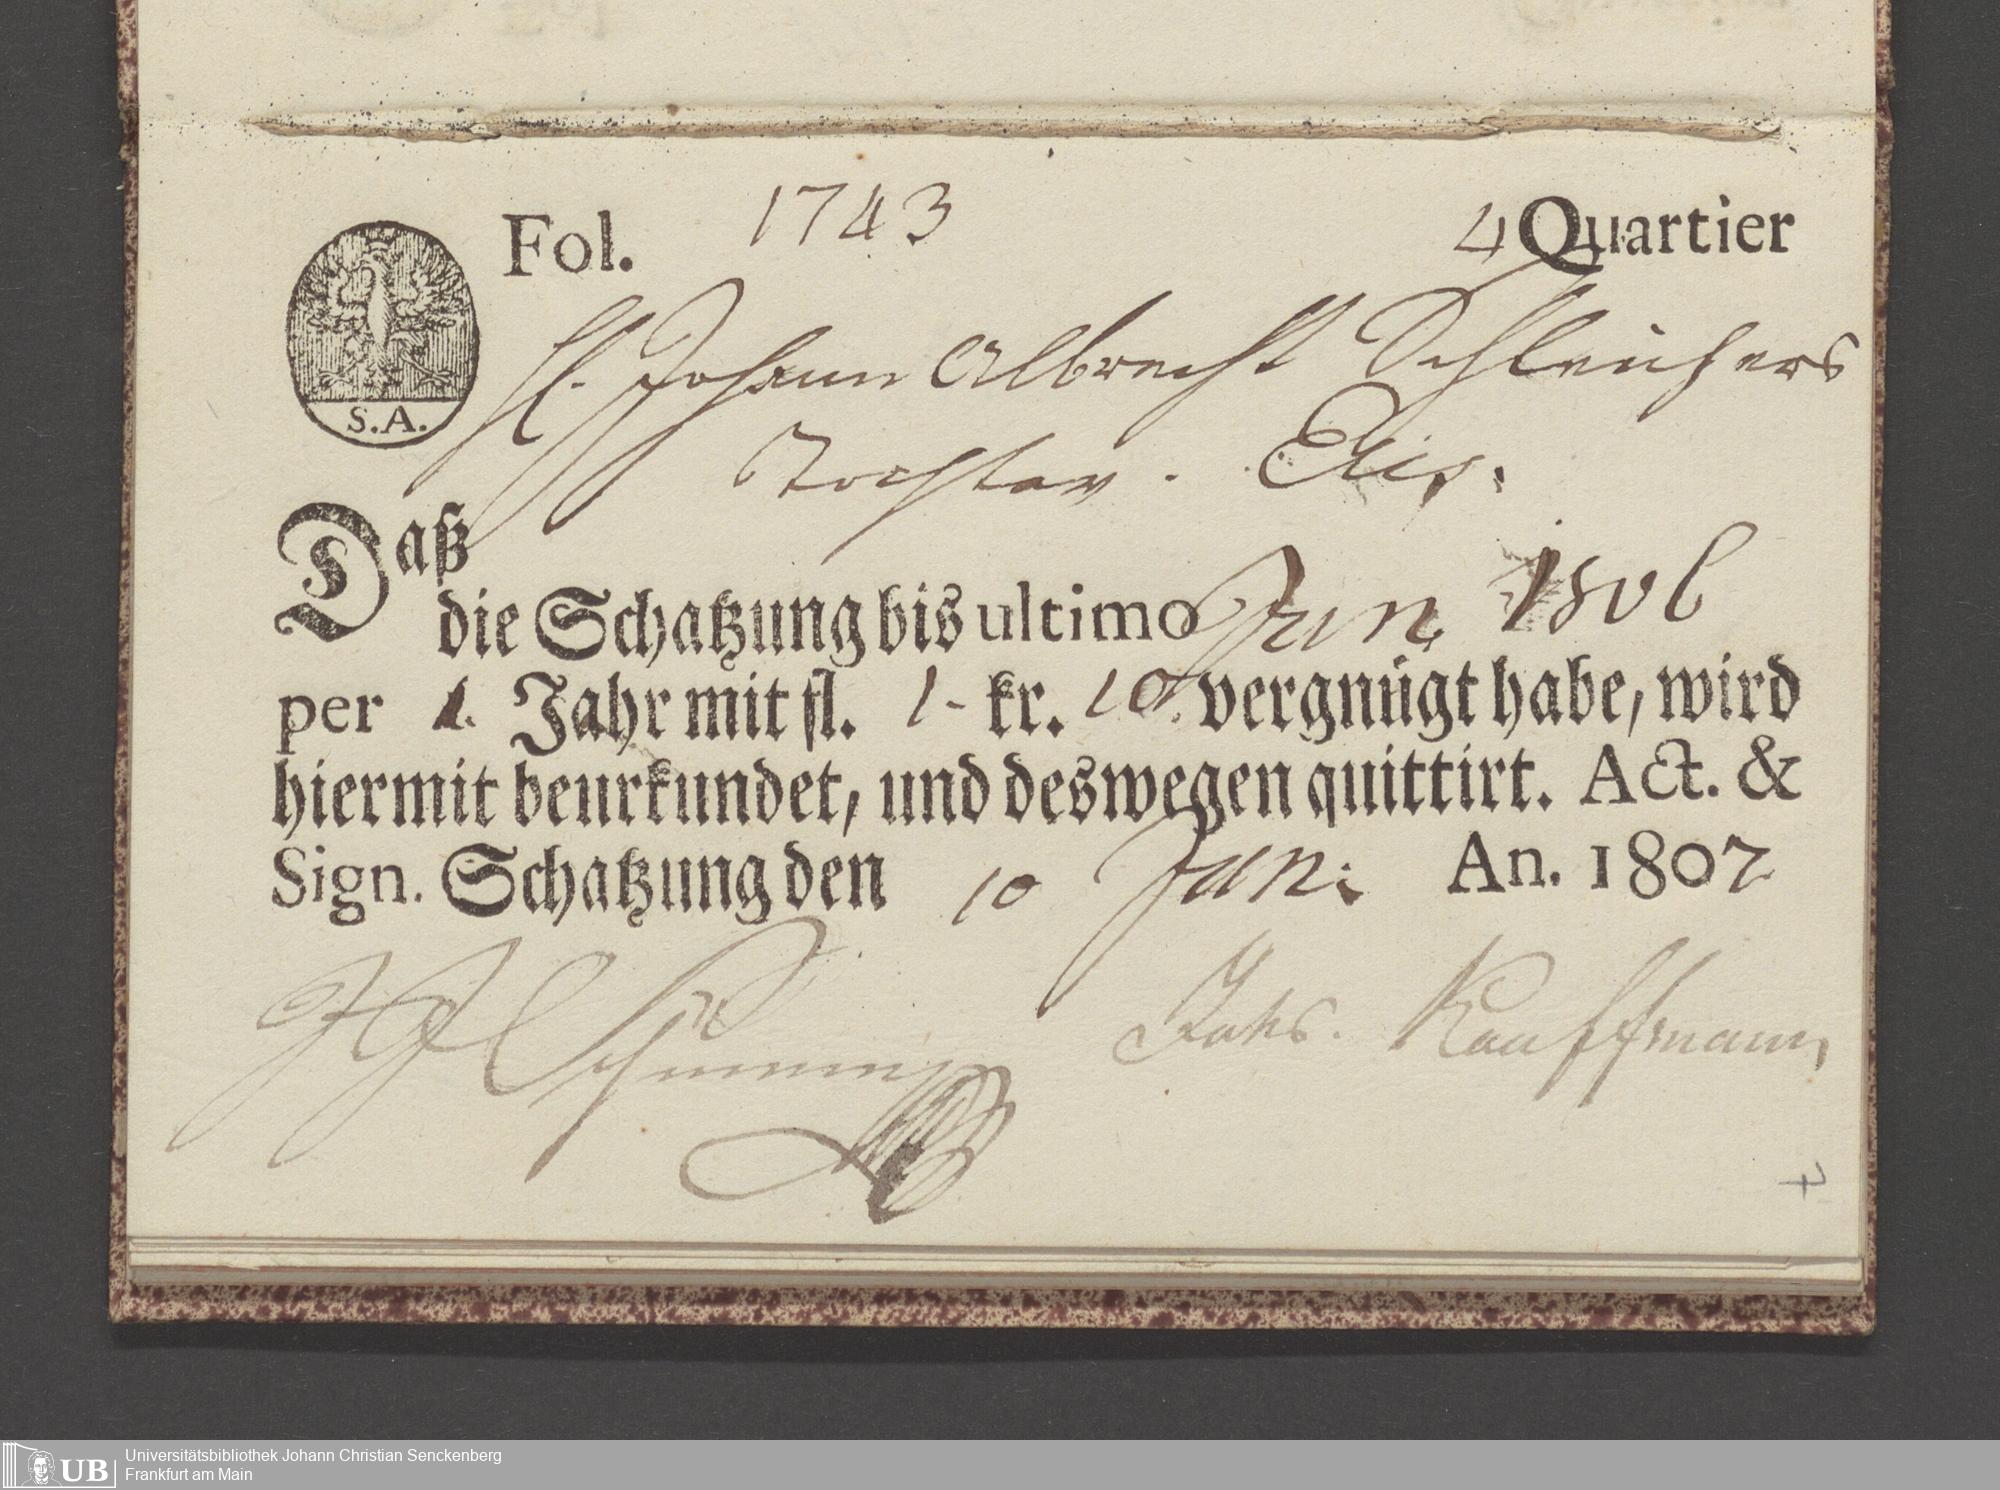 Fol. 1743 4 Quartier
H. Johann Albrecht Schleichers
Tochter.
S.A.
Daß
die Schatzung bis ultimo Jun. 1806
per 1. Jahr mit fl. 1- kr. 10. vergnügt habe, wird
hiermit beurkundet, und deswegen quittirt. Act. &
Sign. Schatzung den 10 Juni An. 1807
Johs. Kauffmann
4
UB
Universitätsbibliothek Johann Christian Senckenberg
Frankfurt am Main